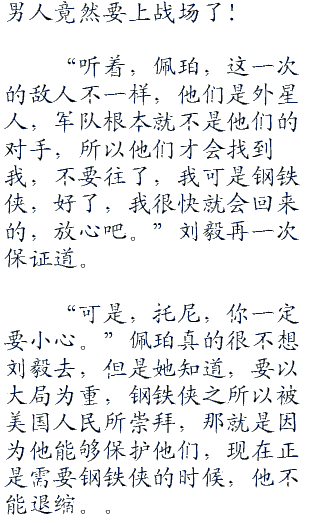 男人竟然要上战场了！
“听着，佩珀，这一次
的敌人不一样，他们是外星
人，军队根本就不是他们的
对手，所以他们才会找到
我，不要往了，我可是钢铁
侠，好了，我很快就会回来
的，放心吧。”刘毅再一次
保证道。
“可是，托尼，你一定
要小心。”佩珀真的很不想
刘毅去，但是她知道，要以
大局为重，钢铁侠之所以被
美国人民所崇拜，那就是因
为他能够保护他们，现在正
是需要钢铁侠的时候，他不
能退缩。。